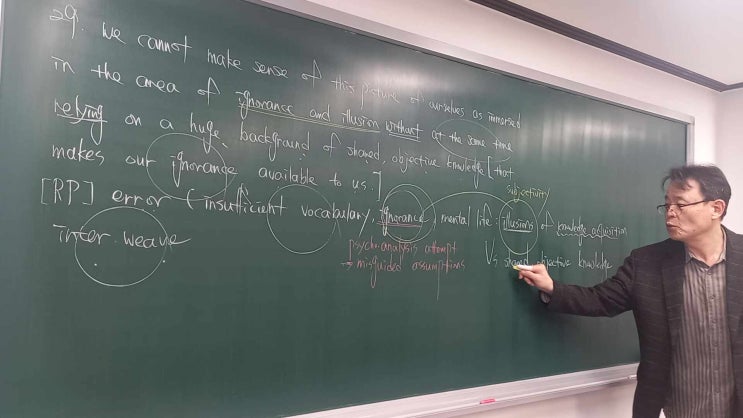 29. We cannot make sense of this picture of ourselves as immersed
in the area of ignorance and illusion without at the same time
relying on a huge background of shared, objective knowledge [that
makes our ignorance available to us.]
subjectivity
[RP] error (insufficient vocabulary, ignorance, mental life illusions of knowledge acquisition
inter weave
psychoanalysis attempt
→ misguided assumptions
Vs shared objective knowledge